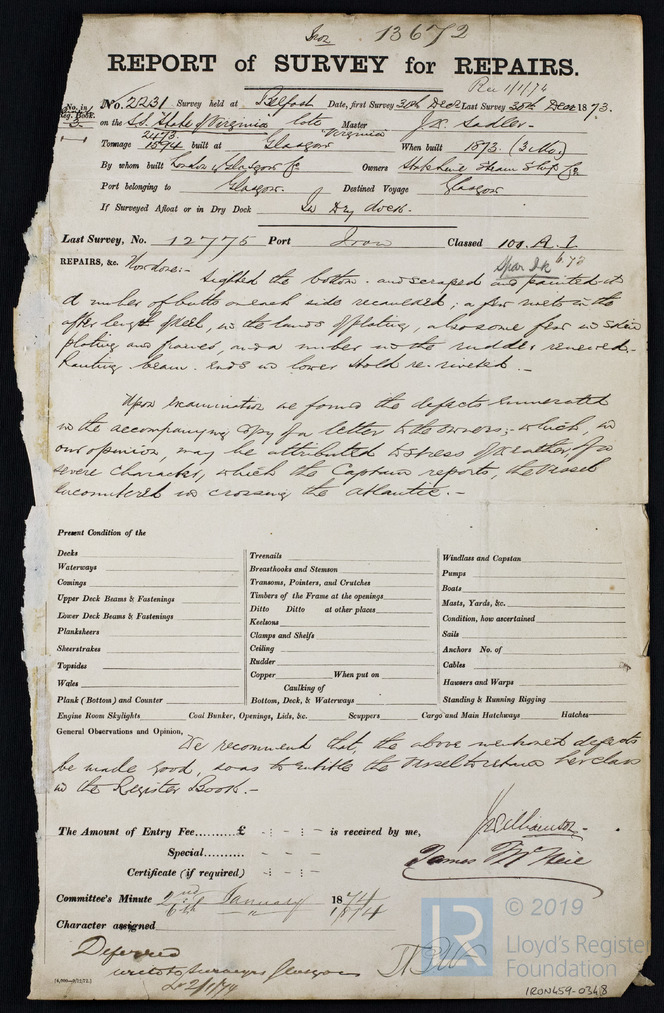 Iron 13672
REPORT of SURVEY for REPAIRS.
Rec 1/1/74
No. in Reg. Book. No. 2231 Survey held at Belfast Date, first Survey 30th Dec Last Survey 30th Decr 1873.
on the S.S. State of Virginia late Virginia Master J. Sadler
Tonnage 2473 1594 built at Glasgow When built 1873 (3 Mo)
By whom built London & Glasgow Co Owners State Line Steam Ship Co
Port belonging to Glasgow Destined Voyage Glasgow
If Surveyed Afloat or in Dry Dock In Dry dock.
Last Survey, No. 12775 Port Iron Classed 100.A.1.
Spar Dk 6.73
REPAIRS, &c. Now done:-
Sighted the bottom. and scraped and painted it
A number of butts on each side recaulked; a few rivets in the
after length of keel, in the lands of plating, also some few in skin
plating and frames, and a number in the rudder renewed.
beam ends in lower hold re-riveted
Upon examination we found the defects enumerated
in the accompanying copy of a letter to the owners; which, in
our opinion, may be attributed to stress of weather, of a
severe character, which the Captain reports, the vessel
encountered in crossing the Atlantic.-
Present Condition of the
Decks
Waterways
Comings
Upper Deck Beams & Fastenings
Lower Deck Beams & Fastenings
Planksheers
Sheerstrakes
Topsides
Wales
Plank (Bottom) and Counter
Treenails
Breasthooks and Stemson
Transoms, Pointers, and Crutches
Timbers of the Frame at the openings
Ditto Ditto at other places
Keelsons
Clamps and Shelfs
Ceiling
Rudder
Copper When put on
Caulking of
Bottom, Deck, & Waterways
Windlass and Capstan
Pumps
Boats
Masts, Yards, &c.
Condition, how ascertained
Sails
Anchors No. of
Cables
Hawsers and Warps
Standing & Running Rigging
Engine Room Skylights Coal Bunker, Openings, Lids, &c. Scuppers Cargo and Main Hatchways Hatches
General Observations and Opinion,
We recommend that, the above mentioned defects
be made good, so as to entitle the vessel to retain her class
in the Register Book.-
The Amount of Entry Fee..........£ - : - : - is received by me,
Special..........
Certificate (if required)
J Williamson.
James McNeil
Committee's Minute 2nd January 1874
6th " 1874
Character assigned
Deferred
write to Surveyors Glasgow
Lr 2/1/74
[4,000-9/12/72.]
© 2019
LR
Lloyd's Register
Foundation
IRON459-0348